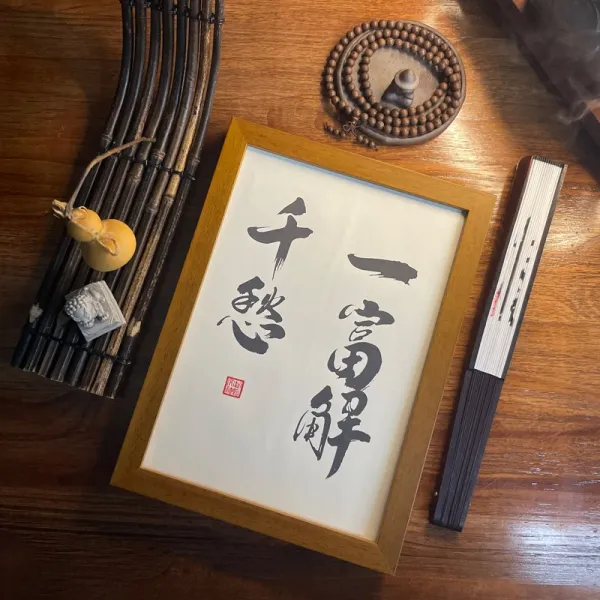 一富解
千愁